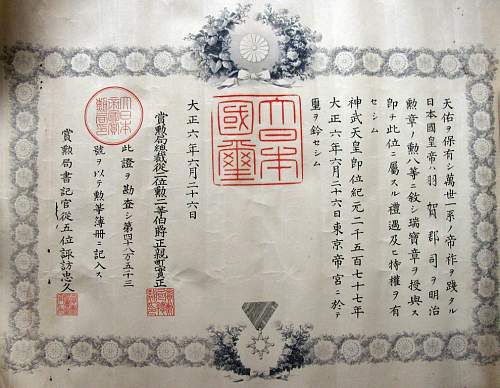 天佑ヲ保有シ萬世一系ノ帝祚ヲ踐タル
日本國皇帝ハ羽賀郡司ヲ明治
勲章ノ勲八等ニ敘シ瑞寶章ヲ授與ス
即チ此位ニ属スル禮遇及ヒ特權ヲ有
セシム
神武天皇即位紀元二千五百七十七年
大正六年六月二十六日東京帝宮ニ於テ
璽ヲ鈐セシム
大日本國璽
大正六年六月二十六日
賞勲局總裁從二位勲一等伯爵正親町實正
此證ヲ勘査シ第四十八万五千三
號ヲ以テ勲等簿册ニ記入ス
賞勲局書記官從五位諏訪忠久